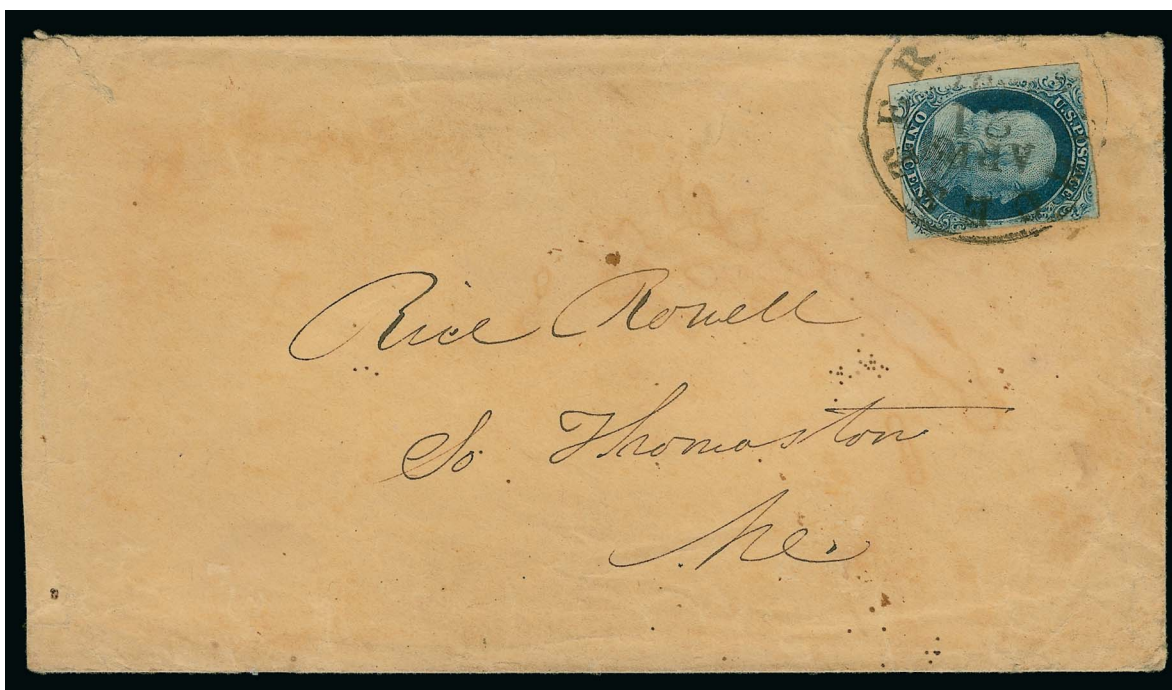 U.S. POSTAGE
ONE CENT
21
Rice Rowell
So. Thomaston
Me.